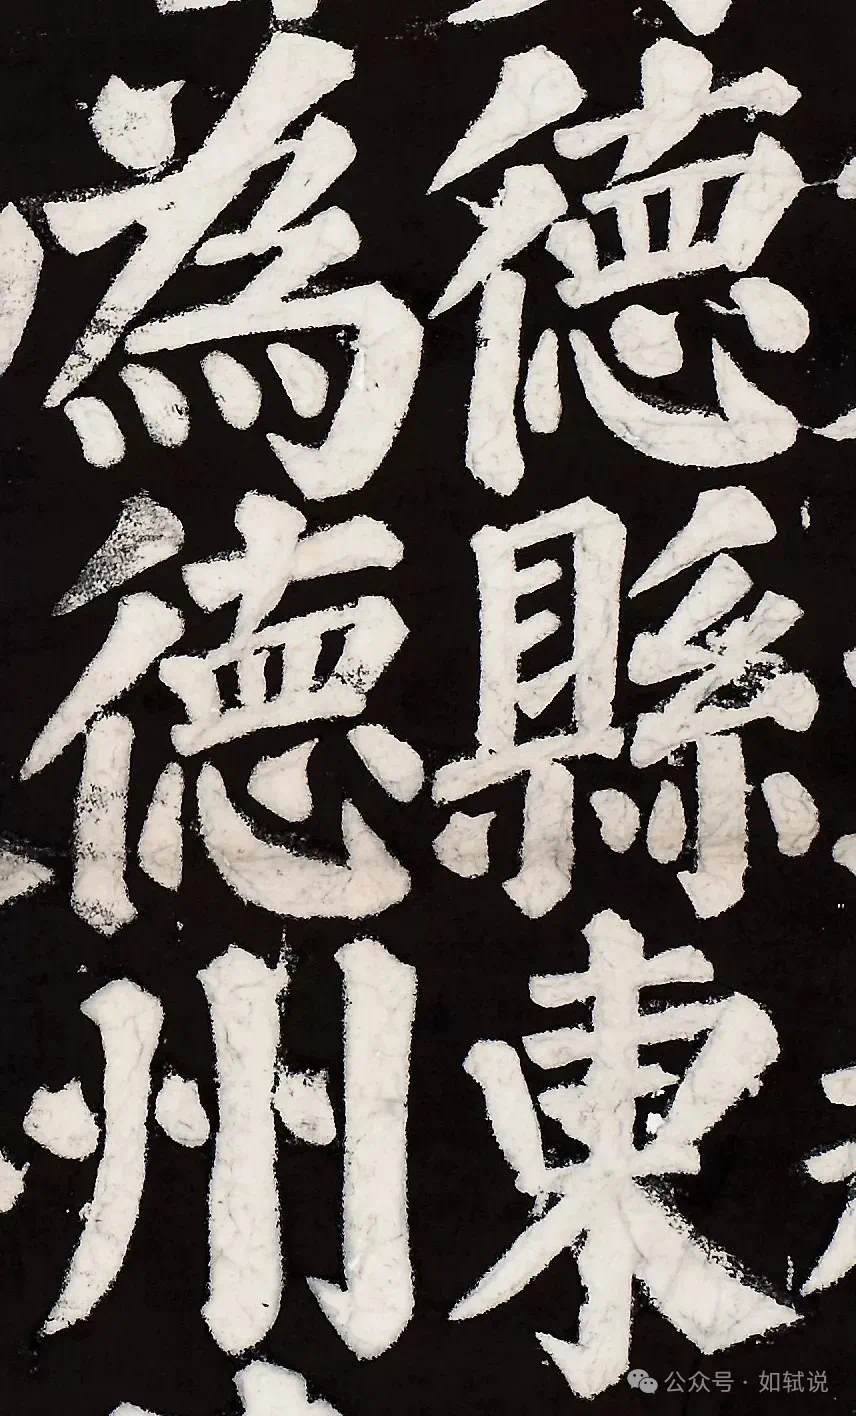 德縣東
為德州
公众号·如轼说